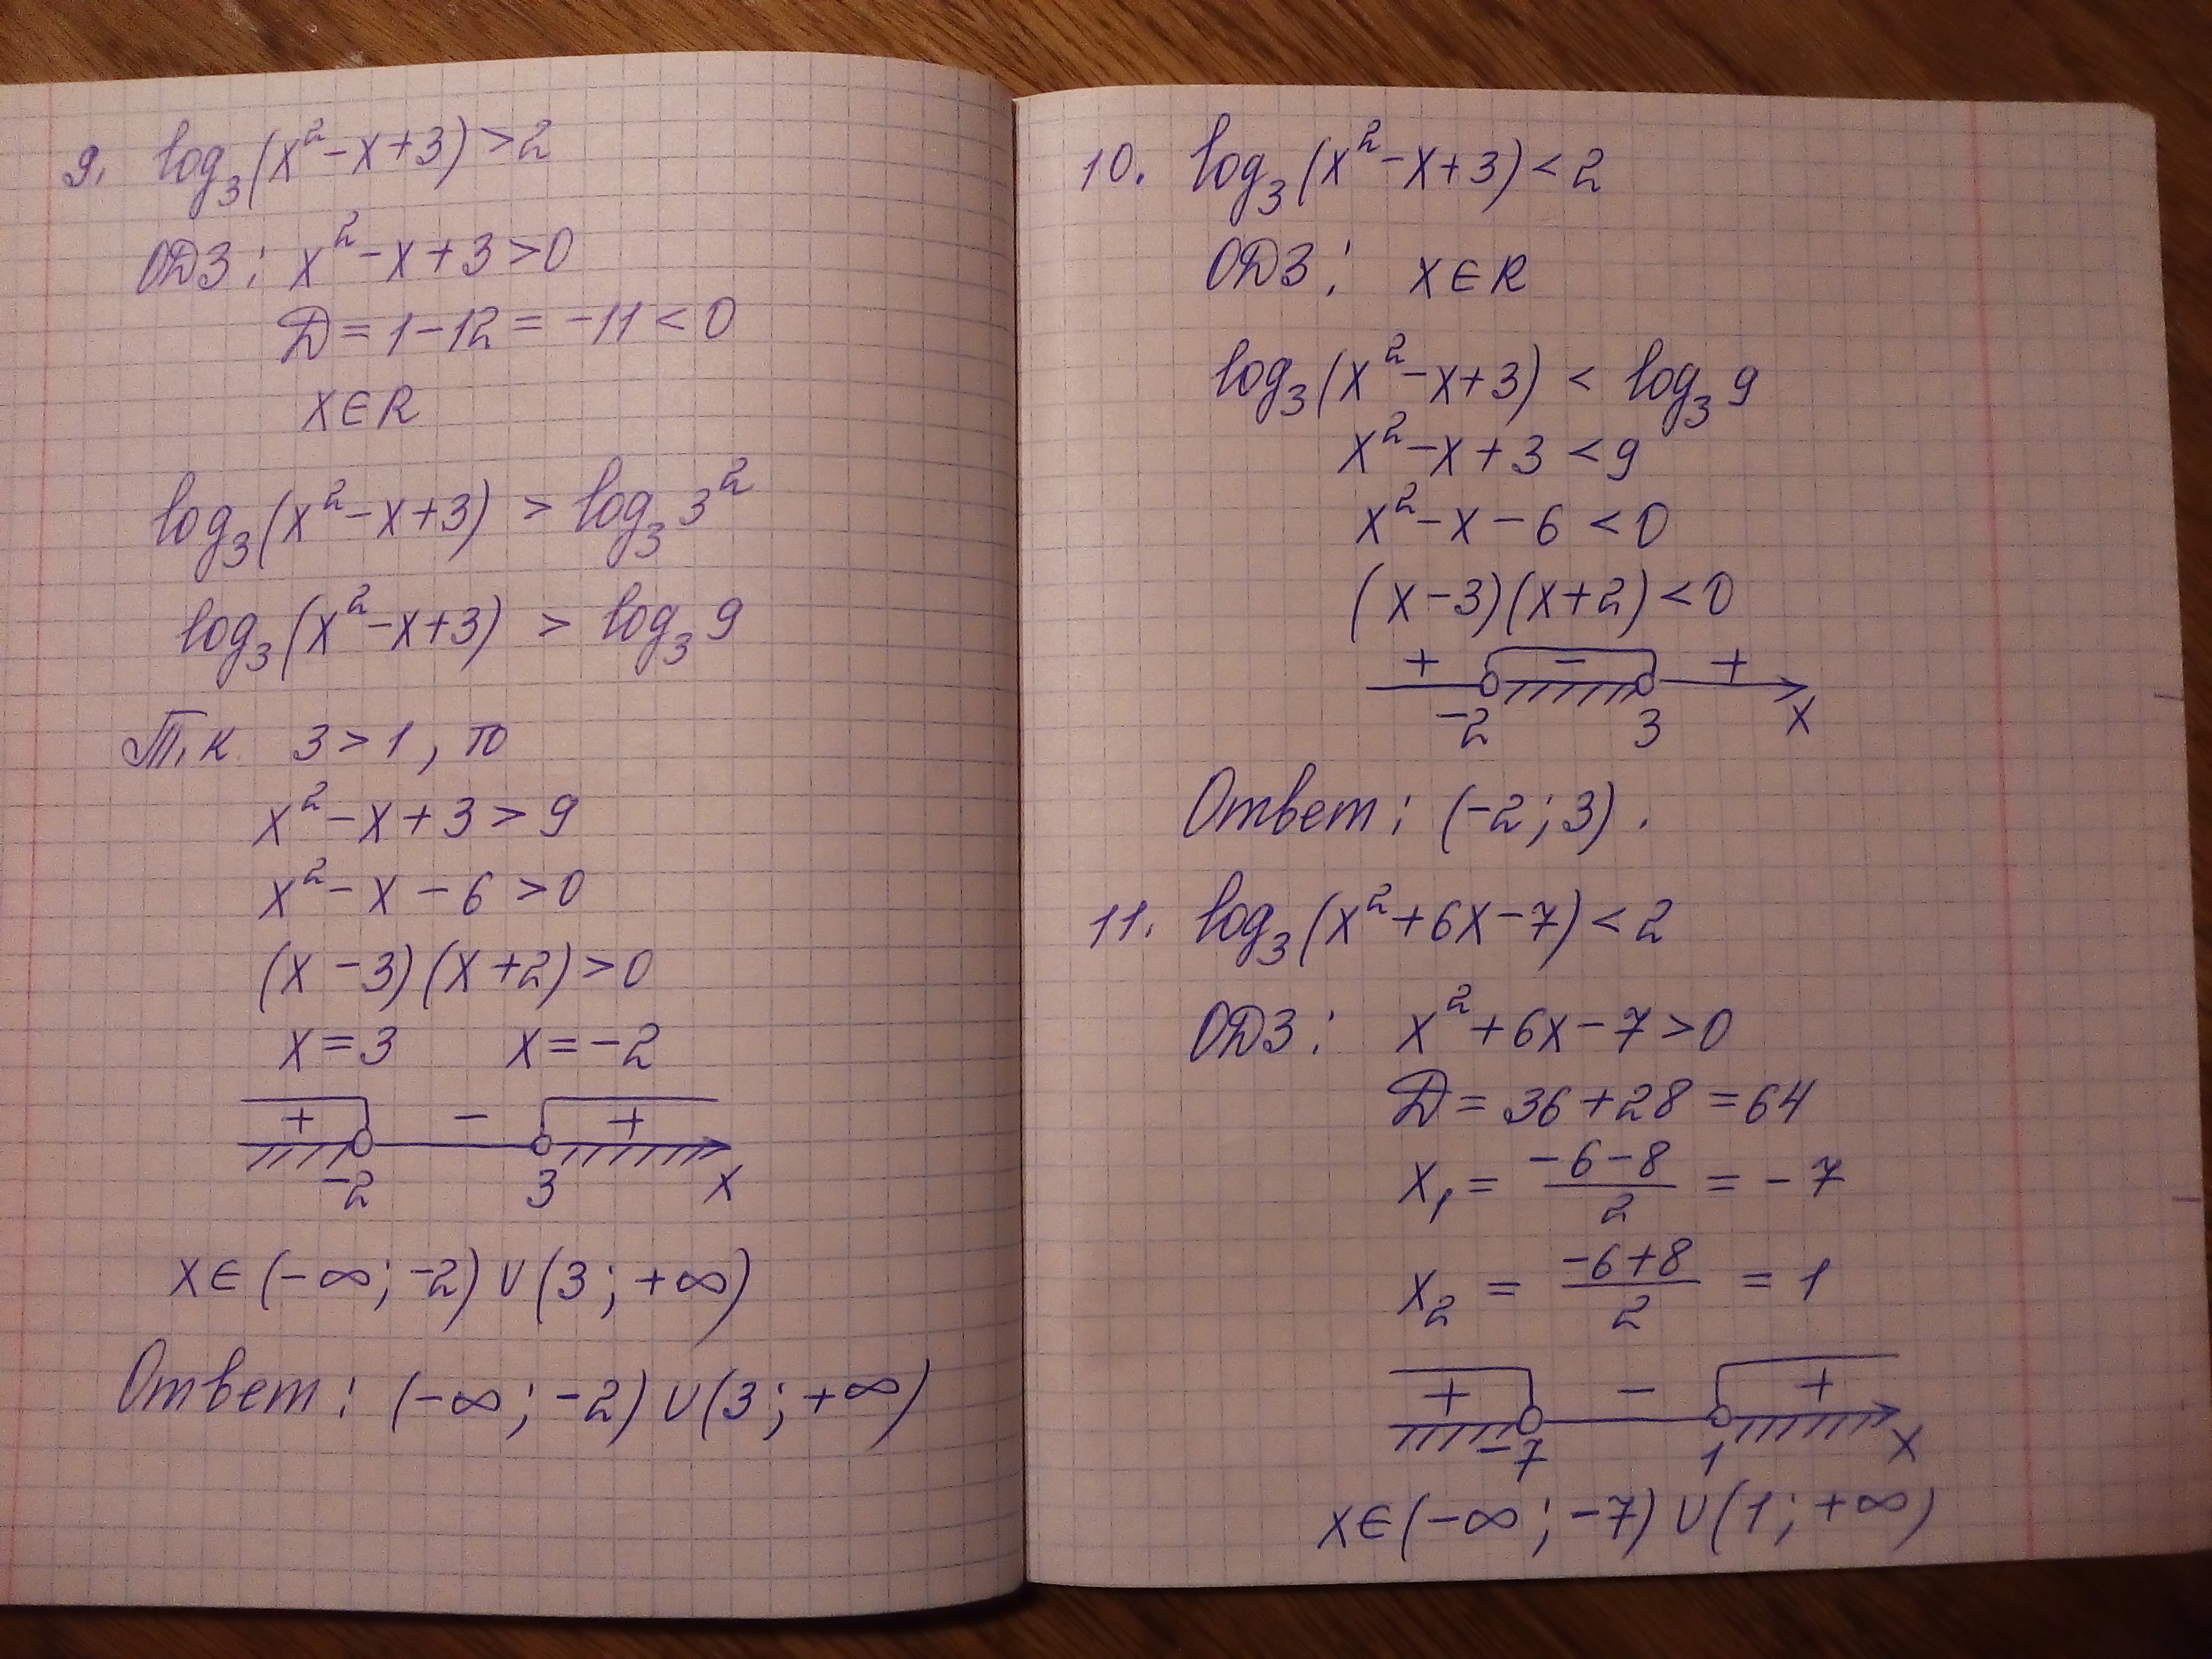 9. log₃(x²-x+3)>2
ОДЗ: x²-x+3>0
Д=1-12=-11<0
x∈R
log₃(x²-x+3) > log₃3²
log₃(x²-x+3) > log₃9
Т.к 3>1, то
x²-x+3>9
x²-x-6>0
(x-3)(x+2)>0
x=3 x=-2
+ - +
-2 3 x
x∈(-∞;-2)∪(3;+∞)
Ответ: (-∞;-2)∪(3;+∞)
10. log₃(x²-x+3)<2
ОДЗ: x∈R
log₃(x²-x+3) < log₃9
x²-x+3<9
x²-x-6<0
(x-3)(x+2)<0
+ - +
-2 3 x
Ответ: (-2;3).
11. log₃(x²+6x-7)<2
ОДЗ: x²+6x-7>0
Д=36+28=64
x₁=(-6-8)/2=-7
x₂=(-6+8)/2=1
+ - +
-7 1 x
x∈(-∞;-7)∪(1;+∞)